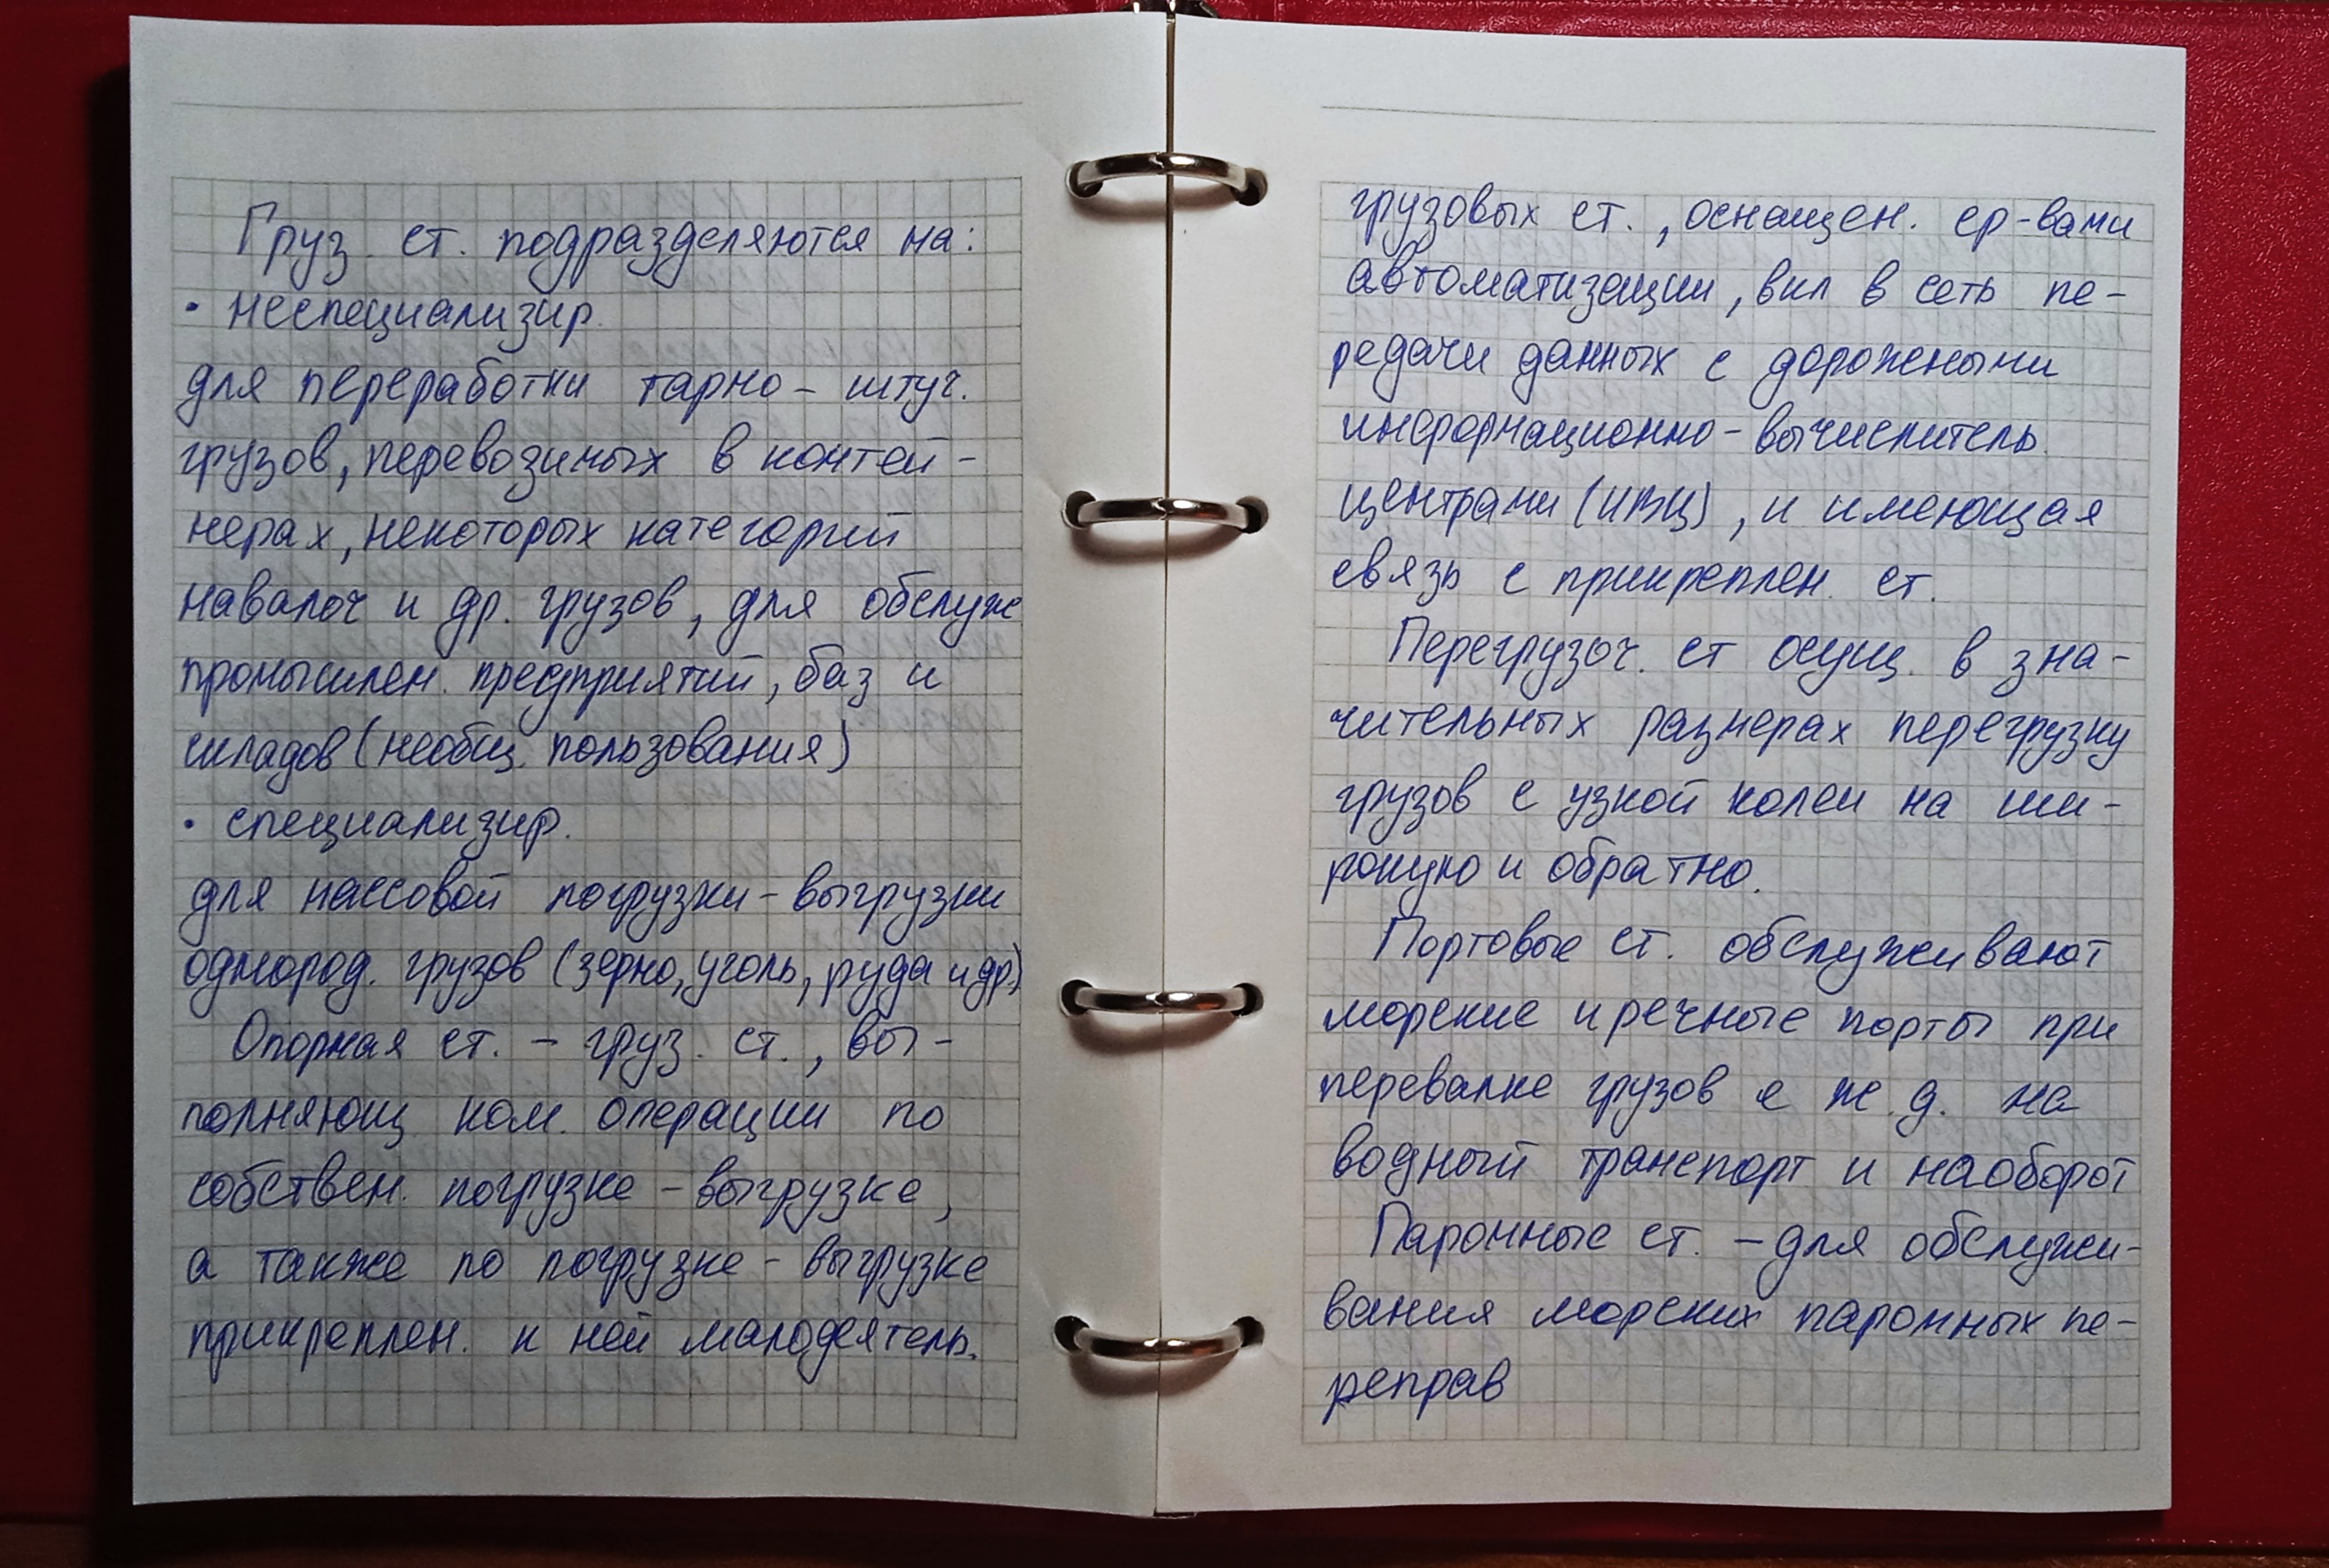 Груз. ст. подразделяются на:
• неспециализир.
для переработки тарно - штуч.
грузов, перевозимых в контей -
нерах, некоторых категорий
навалоч и др. грузов, для обслуж
промышлен. предприятий, баз и
складов (необщ. пользования)
• специализир.
для массовой погрузки - выгрузки
однород. грузов (зерно, уголь, руда и др.)
Опорная ст. - груз. ст., вы -
полняющ ком. операции по
собствен. погрузке - выгрузке,
а также по погрузке - выгрузке
прикреплен. к ней малодеятель.
грузовых ст., оснащен. ср-вами
автоматизации, вкл в сеть пе -
редачи данных с дорожными
информационно - вычислитель.
центрами (ИВЦ), и имеющая
связь с прикреплен. ст.
Перегрузоч. ст осущ. в зна -
чительных размерах перегрузку
грузов с узкой колеи на ши -
рокую и обратно.
Портовые ст. обслуживают
морские и речные порты при
перевалке грузов с ж.д. на
водный транспорт и наоборот
Паромные ст. - для обслужи -
вания морских паромных пе -
реправ